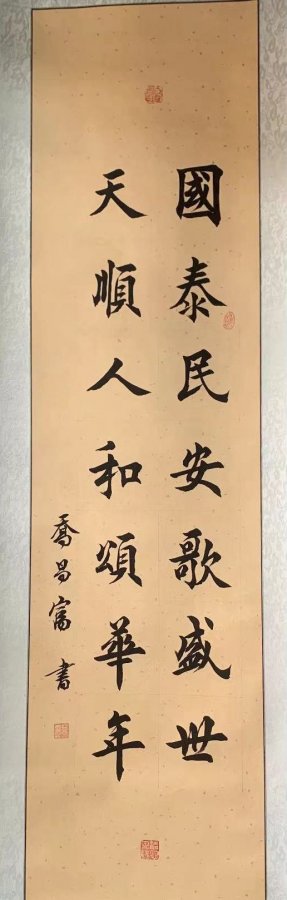 國泰民安歌盛世
天順人和頌華年
喬昌富書